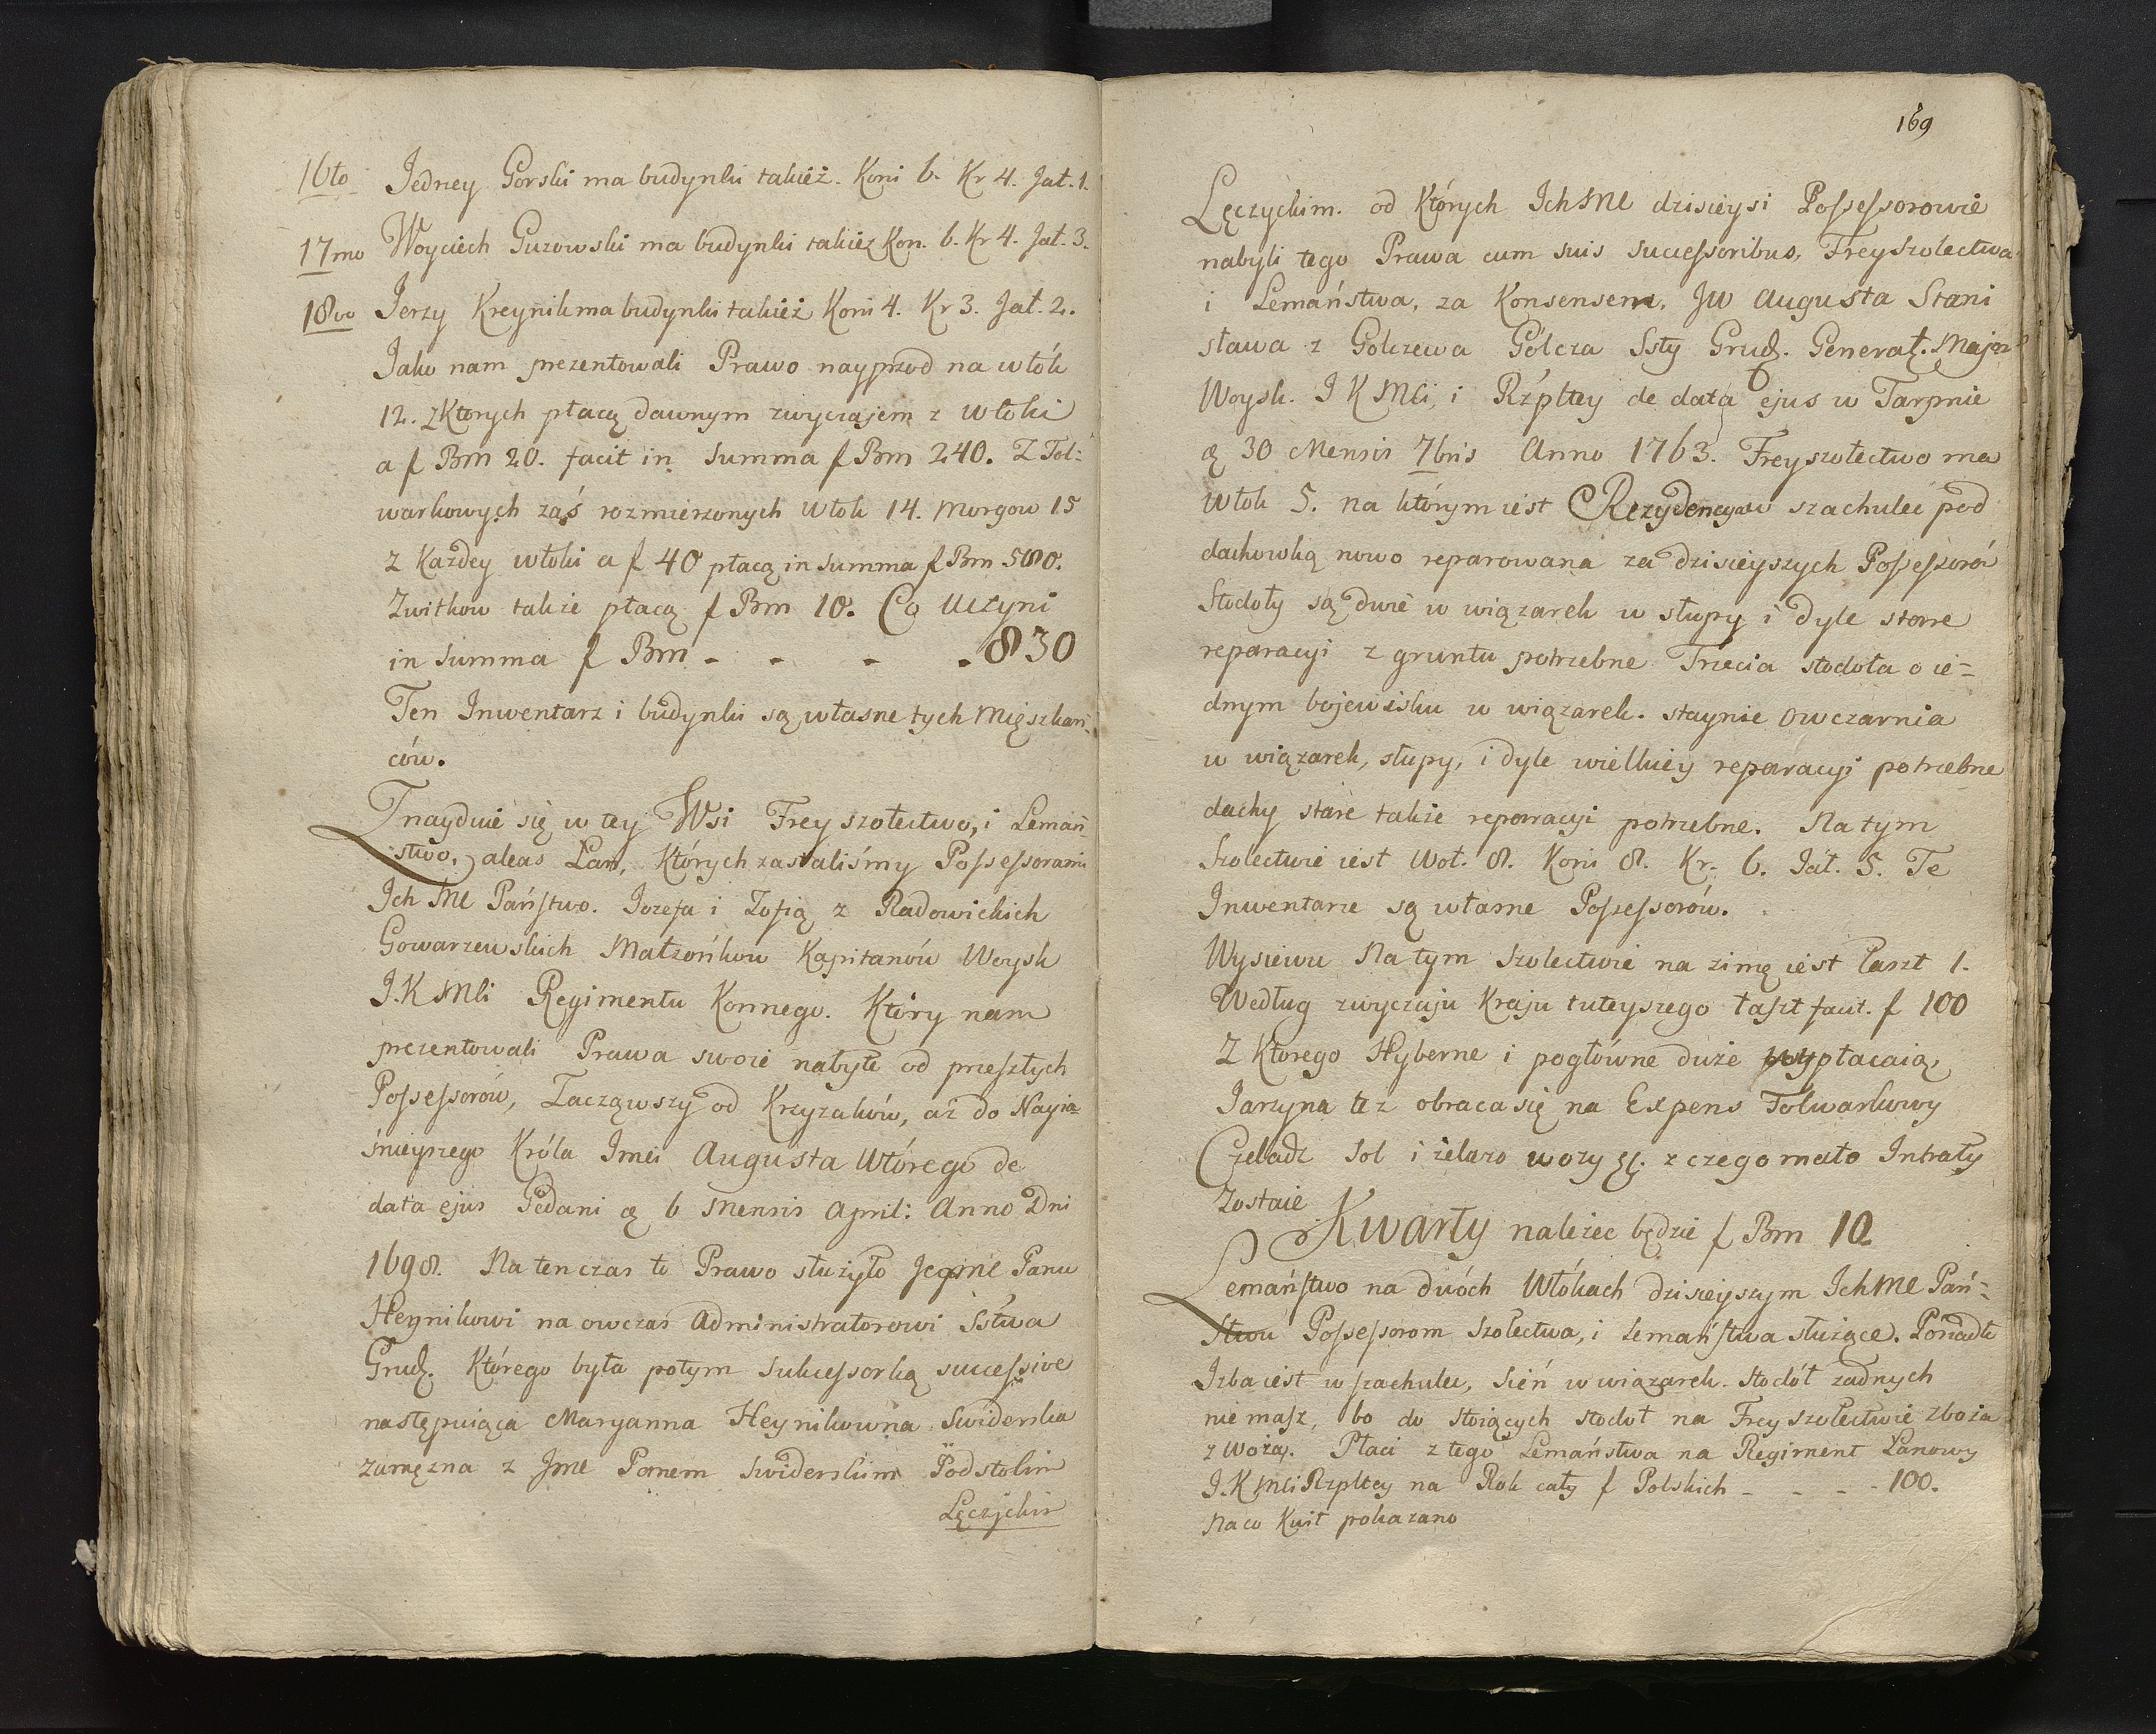 16to Jedrzey Gorski ma budynki takież. Koni 6. Kr 4. Jał. 1.
17mo Woyciech Guzowski ma budynki takież Kon. 6. Kr 4. Jał. 3.
18vo Jerzy Kreynik ma budynki takież Koni 4. Kr 3. Jał. 2.
Jako nam prezentowali Prawo nayprzod na włók
12. z Ktorych płacą dawnym zwyczajem z włoki
a f Bm 20. facit in Summa f Bm 240. Z Fol:
warkowych zaś rozmierzonych włok 14. Morgow 15
z Każdey włoki a f 40 płacą in Summa f Bm 580.
Zwitkow takze płacą f Bm 10. Co Uczyni
in Summa f Bm - - - - 830
Ten Inwentarz i budynki są własne tych Mięszkań-
ców.
Znayduie się w tey Wsi Freyszołectwo, i Lemań-
stwo, aleas Lan, Których zastaliśmy Possessorami
Ich Me Państwo. Jozefa i Zofią z Radowickich
Gowarzewskich Małżonkow Kapitanów Woysk
J.K Mci Regimentu Konnego. Który nam
prezentowali Prawa swoie nabyte od przeszłych
Possessorów, Zacząwszy od Krzyzaków, aż do Nayia-
śnieyszego Króla Jmci Augusta Wtórego de
data ejus Gedani ą 6 Mensis April: Anno Dni
1698. Na ten czas to Prawo służyło Jegome Panu
Heynikowi na owczas Administratorowi Sstwa
Grudz. Którego była potym Sukcessorką successive
następuiąca Maryanna Heynikowna Swiderska
zamęzna z Jme Panem Swiderskim Podstolim
Lęczyckim
169
Lęczyckim. od Których Ich Me dzisieysi Possessorowie
nabyli tego Prawa cum suis successoribus, Freyszolectwa
i Lemaństwa, za Konsensem, JW Augusta Stani
sława z Gólczewa Gólcza Ssty Grudz. Generał. Major
Woysk. J K Mci, i Rzpltey de data ejus w Tarpnie
ą 30 Mensis 7bris Anno 1763. Freyszołectwo ma
Włok 5. na którym iest Rezydencya w szachulec pod
dachowką nowo reparowana za dzisieyszych Possessorów
Stodoły są dwie w wiązarek w słupy i dyle stare
reparacyi z gruntu potrzebne Trzecia stodoła o ie-
dnym bojewisku w wiązarek. staynie Owczarnia
w wiązarek, słupy, i dyle wielkiey reparacyi potrzebne
dachy stare takze reparacyi potrzebne. Na tym
Szolectwie iest Woł. 8. Koni 8. Kr. 6. Jał. 5. Te
Inwentarze są własne Possessorów.
Wysiewu Na tym Szolectwie na zimę iest Łaszt 1.
Według zwyczaju Kraju tuteyszego łaszt facit. f 100
Z Ktorego Hyberne i pogłówne duże wypłacaią,
Jarzyna tez obraca się na Expens Folwarkowy
Czeladz Sol i żelazo wozy z czego mało Intraty
Zostaie
Kwarty należec będzie f Bm 10
Lemaństwo na dwóch Włókach dzisieyszym Ich Me Pań-
Stwu Possessorom Szolectwa, i Lemaństwa służące. Ponadto
Izba iest w szachulec, Sień w wiązarek. Stodół żadnych
nie masz, bo do stoiących stodoł na Freyszolectwie zboża
zwożą. Płaci z tego Lemaństwa na Regiment Łanowy
J.K Mci Rzpltey na Rok cały f Polskich - - - - 100.
Na co Kwit pokazano